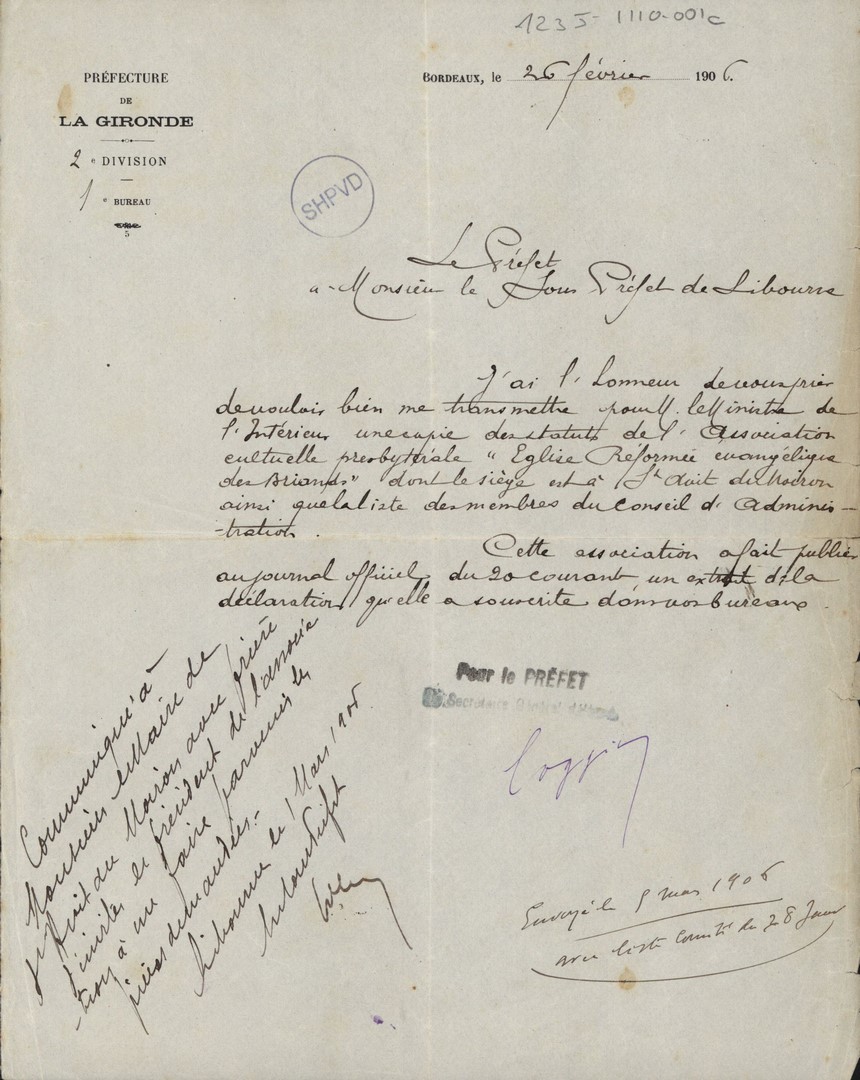 1235-1110-001c
PRÉFECTURE
DE
LA GIRONDE
2e DIVISION
1e BUREAU
5
BORDEAUX, le 26 février 1906.
SHPVD
Le Préfet
a Monsieur le Sous Préfet de Libourne
J'ai l'honneur de vous prier
de vouloir bien me transmettre pour M. le Ministre de
l'Intérieur une copie des statuts de l'Association
cultuelle presbytérale "Eglise Réformée évangélique
des Briands" dont le siège est à St Avit du Moiron
ainsi que la liste des membres du Conseil d'Adminis-
-tration.
Cette association a fait publier
au journal officiel du 20 courant un extrait de la
déclaration qu'elle a souscrite dans vos bureaux.
Pour le PRÉFET
Le Secrétaire Général
Communiqué à
Monsieur le Maire de
St Avit du Moiron avec prière
d'inviter le président de l'associa
-tion à me faire parvenir les
pièces demandées.-
Libourne le 1 Mars 1906
Le Sous Préfet
Envoyé le 5 mars 1906
avec liste Comité du 28 Janv